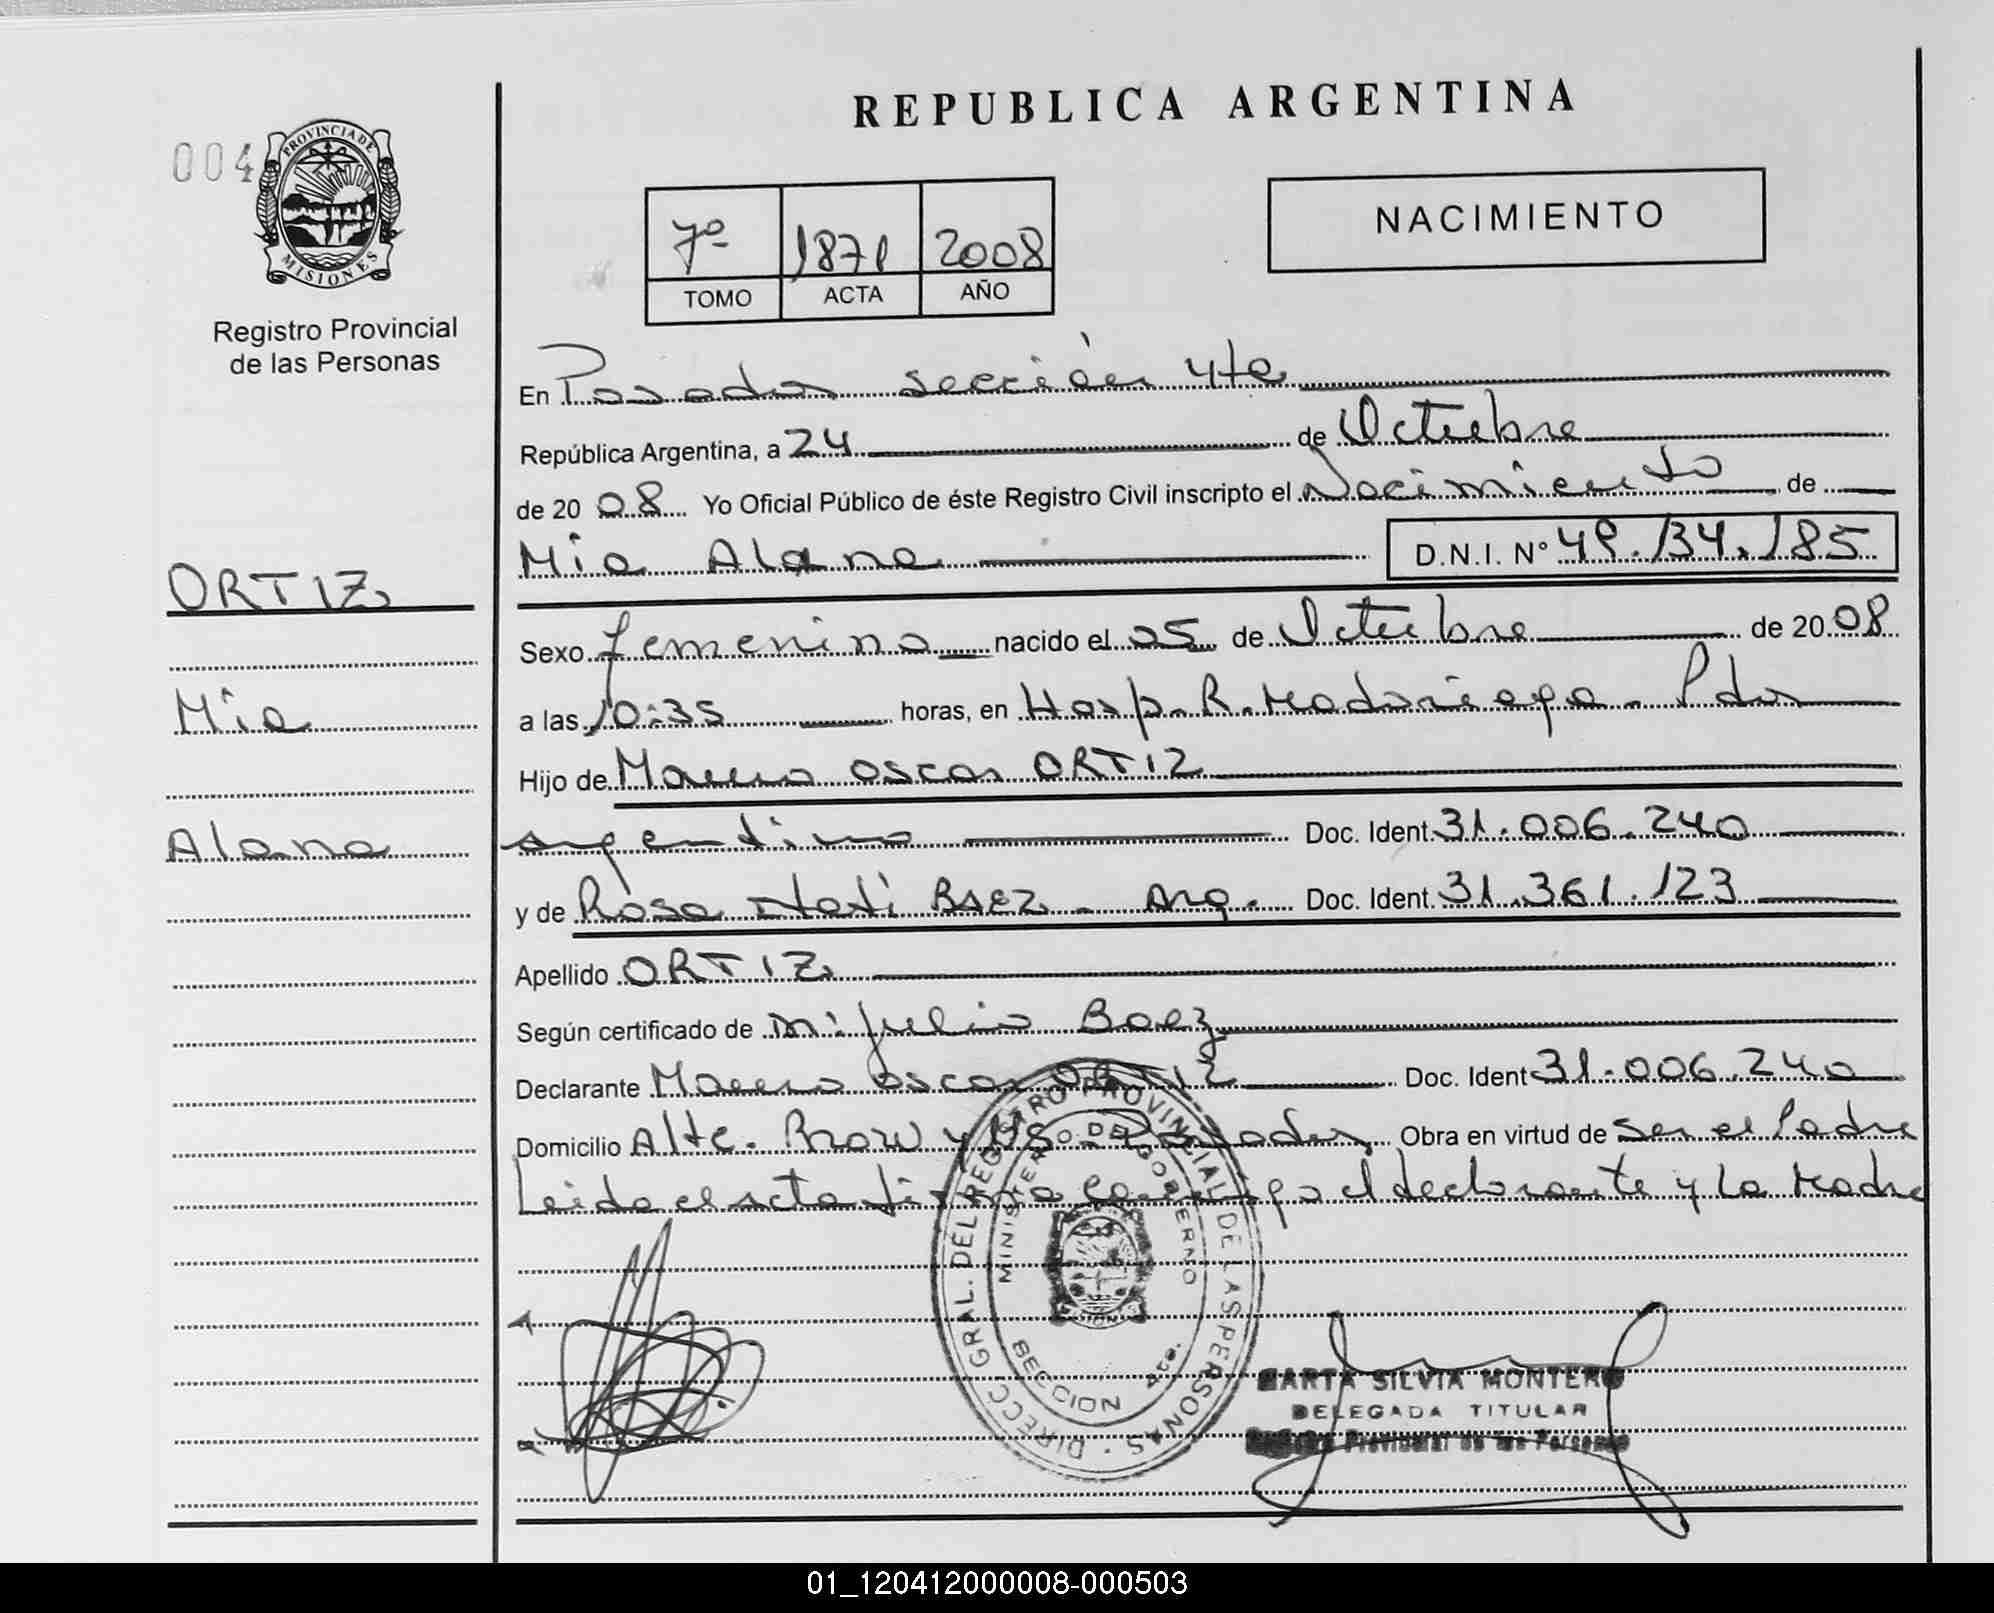 REPUBLICA ARGENTINA
004
PROVINCIA DE
MISIONES
Registro Provincial
de las Personas
7º 1871 2008
TOMO ACTA AÑO
NACIMIENTO
En Posadas sección 4ta
República Argentina, a 24 de Octubre
de 2008 Yo Oficial Público de éste Registro Civil inscripto el Nacimiento de
Mia Alana D.N.I. Nº 49.134.185
ORTIZ
Sexo femenino nacido el 05 de Octubre de 2008
Mia
a las 10:35 horas, en Hosp. R. Madariaga - Pdas
Hijo de Mauro Oscar ORTIZ
Alana
argentino Doc. Ident. 31.006.240
y de Rosa Nati BAEZ - Arg. Doc. Ident. 31.361.123
Apellido ORTIZ
Según certificado de Julio Baez
Declarante Mauro Oscar ORTIZ Doc. Ident 31.006.240
Domicilio Alte. Brow y Posadas Obra en virtud de ser el Padre
Leida el acta firma conmigo el declarante y la Madre
DIRECC. GRAL. DEL REGISTRO PROVINCIAL DE LAS PERSONAS
MINISTERIO DE GOBIERNO
SECCION 4ta.
MARTA SILVIA MONTERO
DELEGADA TITULAR
Registro Provincial de las Personas
01_120412000008-000503